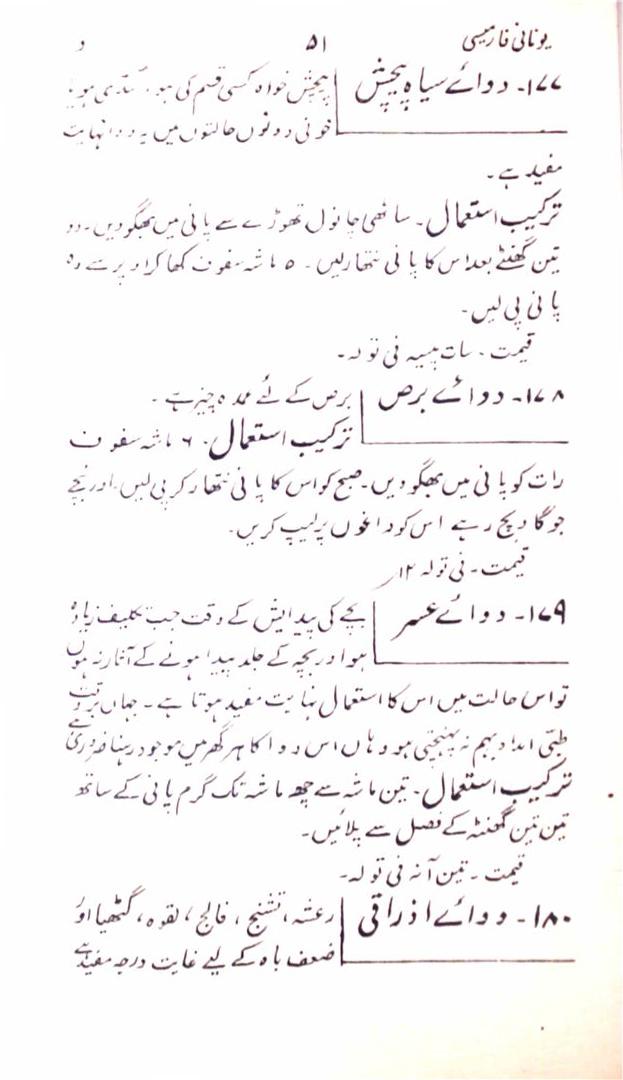 یونانی فارمیسی ۵۱ د
۱۷۷۔ دوائے سیاہ پیچش پیچش خواہ کسی قسم کی ہو، سُدی ہو یا
خونی دونوں حالتوں میں یہ دوا نہایت
مفید ہے۔
ترکیب استعمال۔ ساٹھی چانول تھوڑے سے پانی میں بھگو دیں۔ دو
تین گھنٹے بعد اس کا پانی نتھار لیں۔ ۵ ماشہ سفوف کھا کر اوپر سے وہ
پانی پی لیں۔
قیمت۔ سات پیسہ فی تولہ۔
۱۷۸۔ دوائے برص برص کے لئے عمدہ چیز ہے۔
ترکیب استعمال۔ ۶ ماشہ سفوف
رات کو پانی میں بھگو دیں۔ صبح کو اس کا پانی نتھار کر پی لیں۔ اور نیچے
جو گاد بچ رہے اس کو داغوں پر لیپ کریں۔
قیمت۔ فی تولہ ۱۲؍
۱۷۹۔ دوائے عسر بچے کی پیدایش کے وقت جب تکلیف زیادہ
ہو اور بچہ کے جلد پیدا ہونے کے آثار نہ ہوں
تو اس حالت میں اس کا استعمال نہایت مفید ہوتا ہے۔ جہاں بروقت
طبّی امداد بہم نہ پہنچتی ہو وہاں اس دوا کا ہر گھر میں موجود رہنا ضروری ہے
ترکیب استعمال۔ تین ماشہ سے چھ ماشہ تک گرم پانی کے ساتھ
تین تین گھنٹہ کے فصل سے پلائیں۔
قیمت۔ تین آنہ فی تولہ۔
۱۸۰۔ دوائے اذراقی رعشہ، تشنج، فالج، لقوہ، گٹھیا اور
ضعف باہ کے لیے غایت درجہ مفید ہے